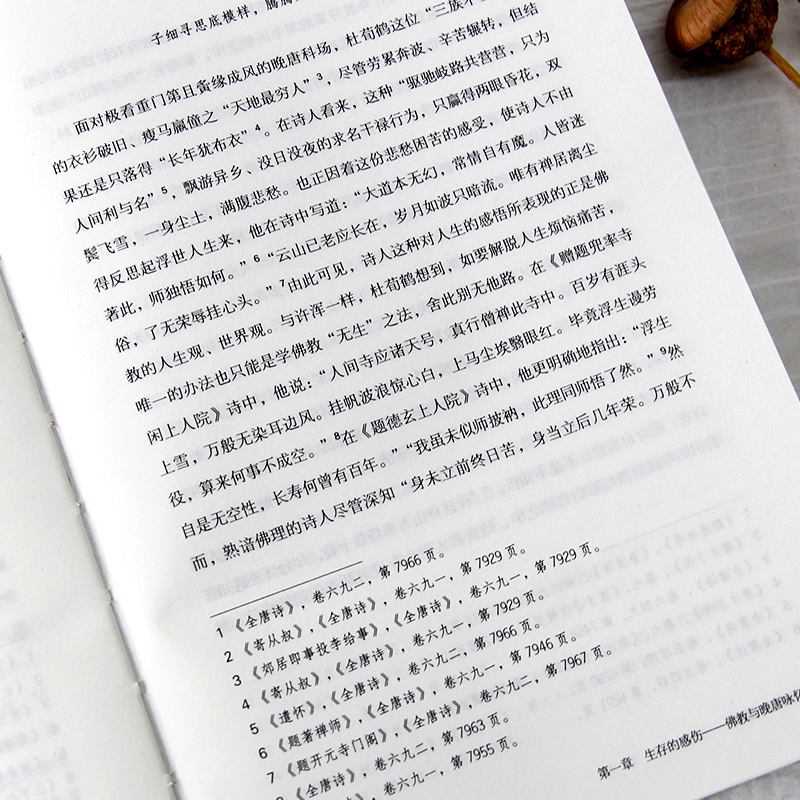 子细寻思底模样，腾
面对极看重门第且夤缘成风的晚唐科场，杜荀鹤这位“三族不
的衣衫破旧、瘦马羸僮之“天地最穷人”3，尽管劳累奔波、辛苦辗转，但结
果还是只落得“长年犹布衣”4。在诗人看来，这种“驱驰岐路共营营，只为
人间利与名”5，飘游异乡、没日没夜的求名干禄行为，只赢得两眼昏花，双
鬓飞雪，一身尘土，满腹悲愁。也正因着这份悲愁困苦的感受，使诗人不由
得反思起浮世人生来，他在诗中写道：“大道本无幻，常情自有魔。人皆迷
著此，师独悟如何。”6“云山已老应长在，岁月如波只暗流。唯有禅居离尘
俗，了无荣辱挂心头。”7由此可见，诗人这种对人生的感悟所表现的正是佛
教的人生观、世界观。与许浑一样，杜荀鹤想到，如要解脱人生烦恼痛苦，
唯一的办法也只能是学佛教“无生”之法，舍此别无他路。在《赠题兜率寺
闲上人院》诗中，他说：“人间寺应诸天号，真行僧禅此寺中。百岁有涯头
上雪，万般无染耳边风。挂帆波浪惊心白，上马尘埃翳眼红。毕竟浮生谩劳
役，算来何事不成空。”8在《题德玄上人院》诗中，他更明确地指出：“浮生
自是无空性，长寿何曾有百年。”“我虽未似师披衲，此理同师悟了然。”9然
而，熟谙佛理的诗人尽管深知“身未立前终日苦，身当立后几年荣。万般不
1 《全唐诗》，卷六九二，第 7966 页。
2 《寄从叔》，《全唐诗》，卷六九一，第 7929 页。
3 《郊居即事投李给事》，《全唐诗》，卷六九一，第 7929 页。
4 《寄从叔》，《全唐诗》，卷六九一，第 7929 页。
5 《遣怀》，《全唐诗》，卷六九二，第 7966 页。
6 《题著禅师》，《全唐诗》，卷六九一，第 7946 页。
7 《题开元寺门阁》，《全唐诗》，卷六九二，第 7967 页。
《全唐诗》，卷六九二，第 7963 页。
《全唐诗》，卷六九一，第 7955 页。
第一章 生存的感伤——佛教与晚唐咏怀